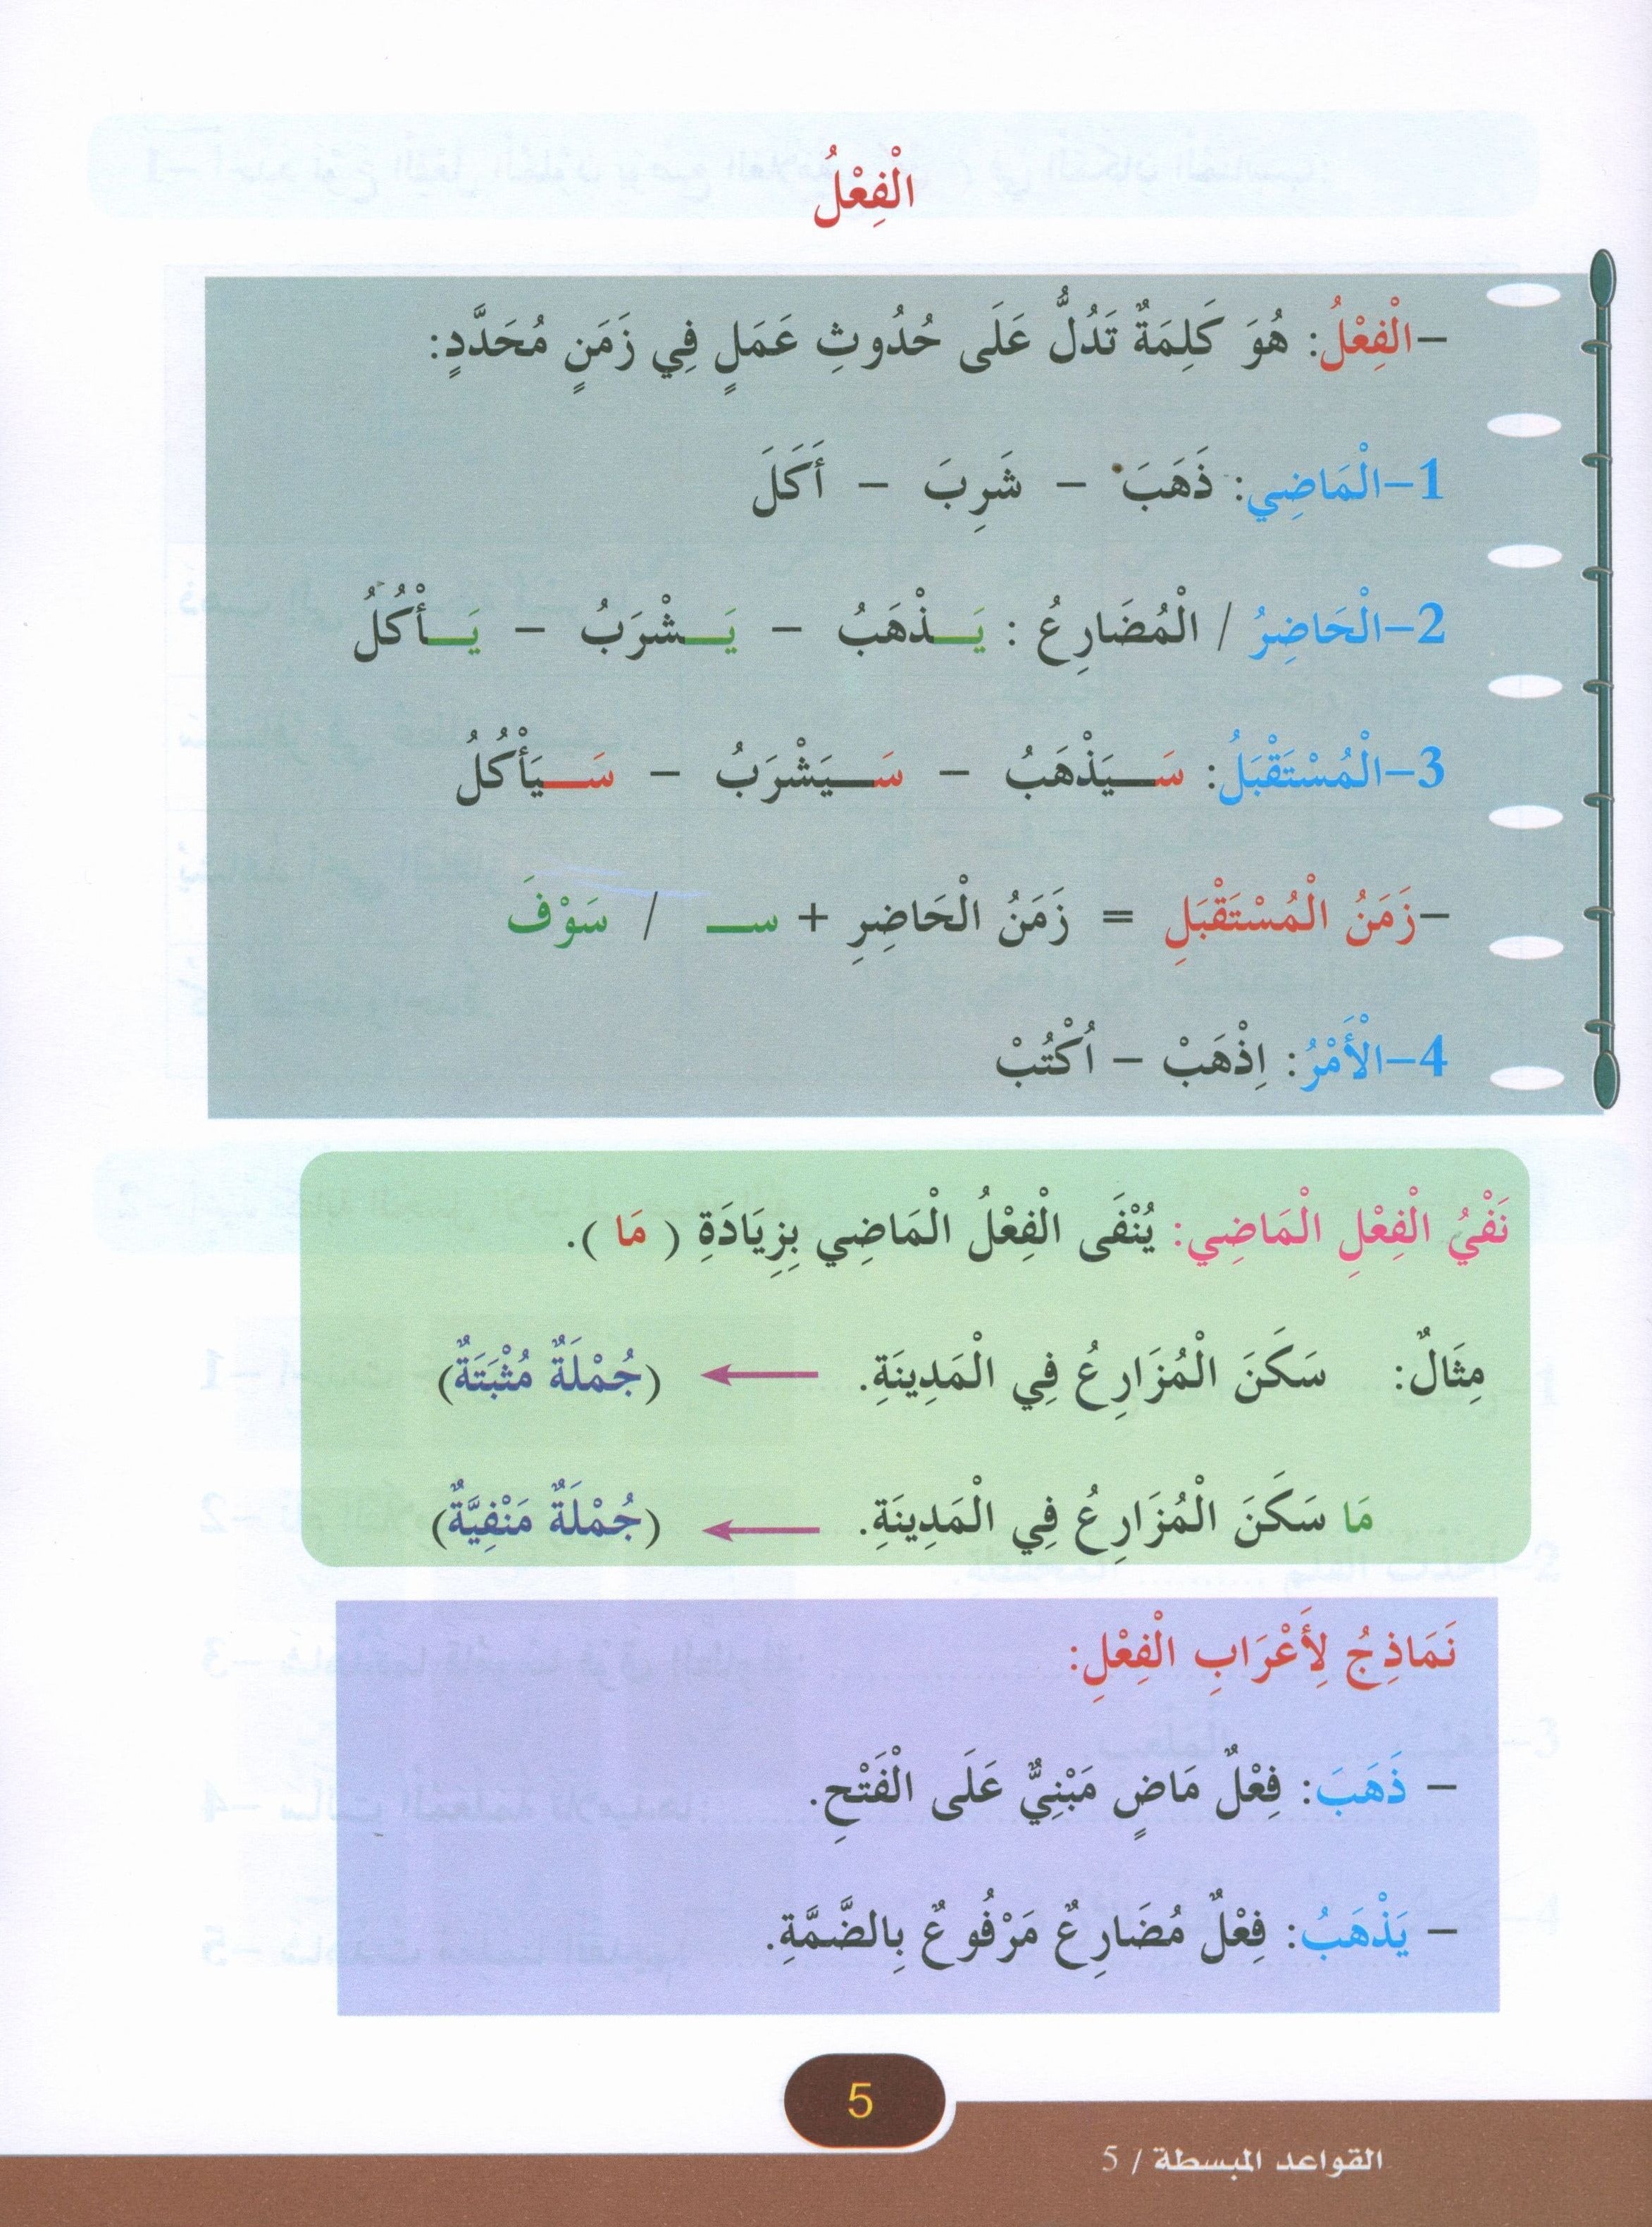 الْفِعْلُ
–الْفِعْلُ: هُوَ كَلِمَةٌ تَدُلُّ عَلَى حُدُوثِ عَمَلٍ فِي زَمَنٍ مُحَدَّدٍ:
1–الْمَاضِي: ذَهَبَ – شَرِبَ – أَكَلَ
2–الْحَاضِرُ / الْمُضَارِعُ : يَــذْهَبُ – يَــشْرَبُ – يَــأْكُلُ
3–الْمُسْتَقْبَلُ: سَــيَذْهَبُ – سَــيَشْرَبُ – سَــيَأْكُلُ
–زَمَنُ الْمُسْتَقْبَلِ = زَمَنُ الْحَاضِرِ + ســ / سَوْفَ
4–الْأَمْرُ: اِذْهَبْ – اُكْتُبْ
نَفْيُ الْفِعْلِ الْمَاضِي: يُنْفَى الْفِعْلُ الْمَاضِي بِزِيَادَةِ ( مَا ).
مِثَالٌ: سَكَنَ الْمُزَارِعُ فِي الْمَدِينَةِ. ← (جُمْلَةٌ مُثْبَتَةٌ)
مَا سَكَنَ الْمُزَارِعُ فِي الْمَدِينَةِ. ← (جُمْلَةٌ مَنْفِيَّةٌ)
نَمَاذِجُ لِأَعْرَابِ الْفِعْلِ:
– ذَهَبَ: فِعْلٌ مَاضٍ مَبْنِيٌّ عَلَى الْفَتْحِ.
– يَذْهَبُ: فِعْلٌ مُضَارِعٌ مَرْفُوعٌ بِالضَّمَّةِ.
5
القواعد المبسطة / 5